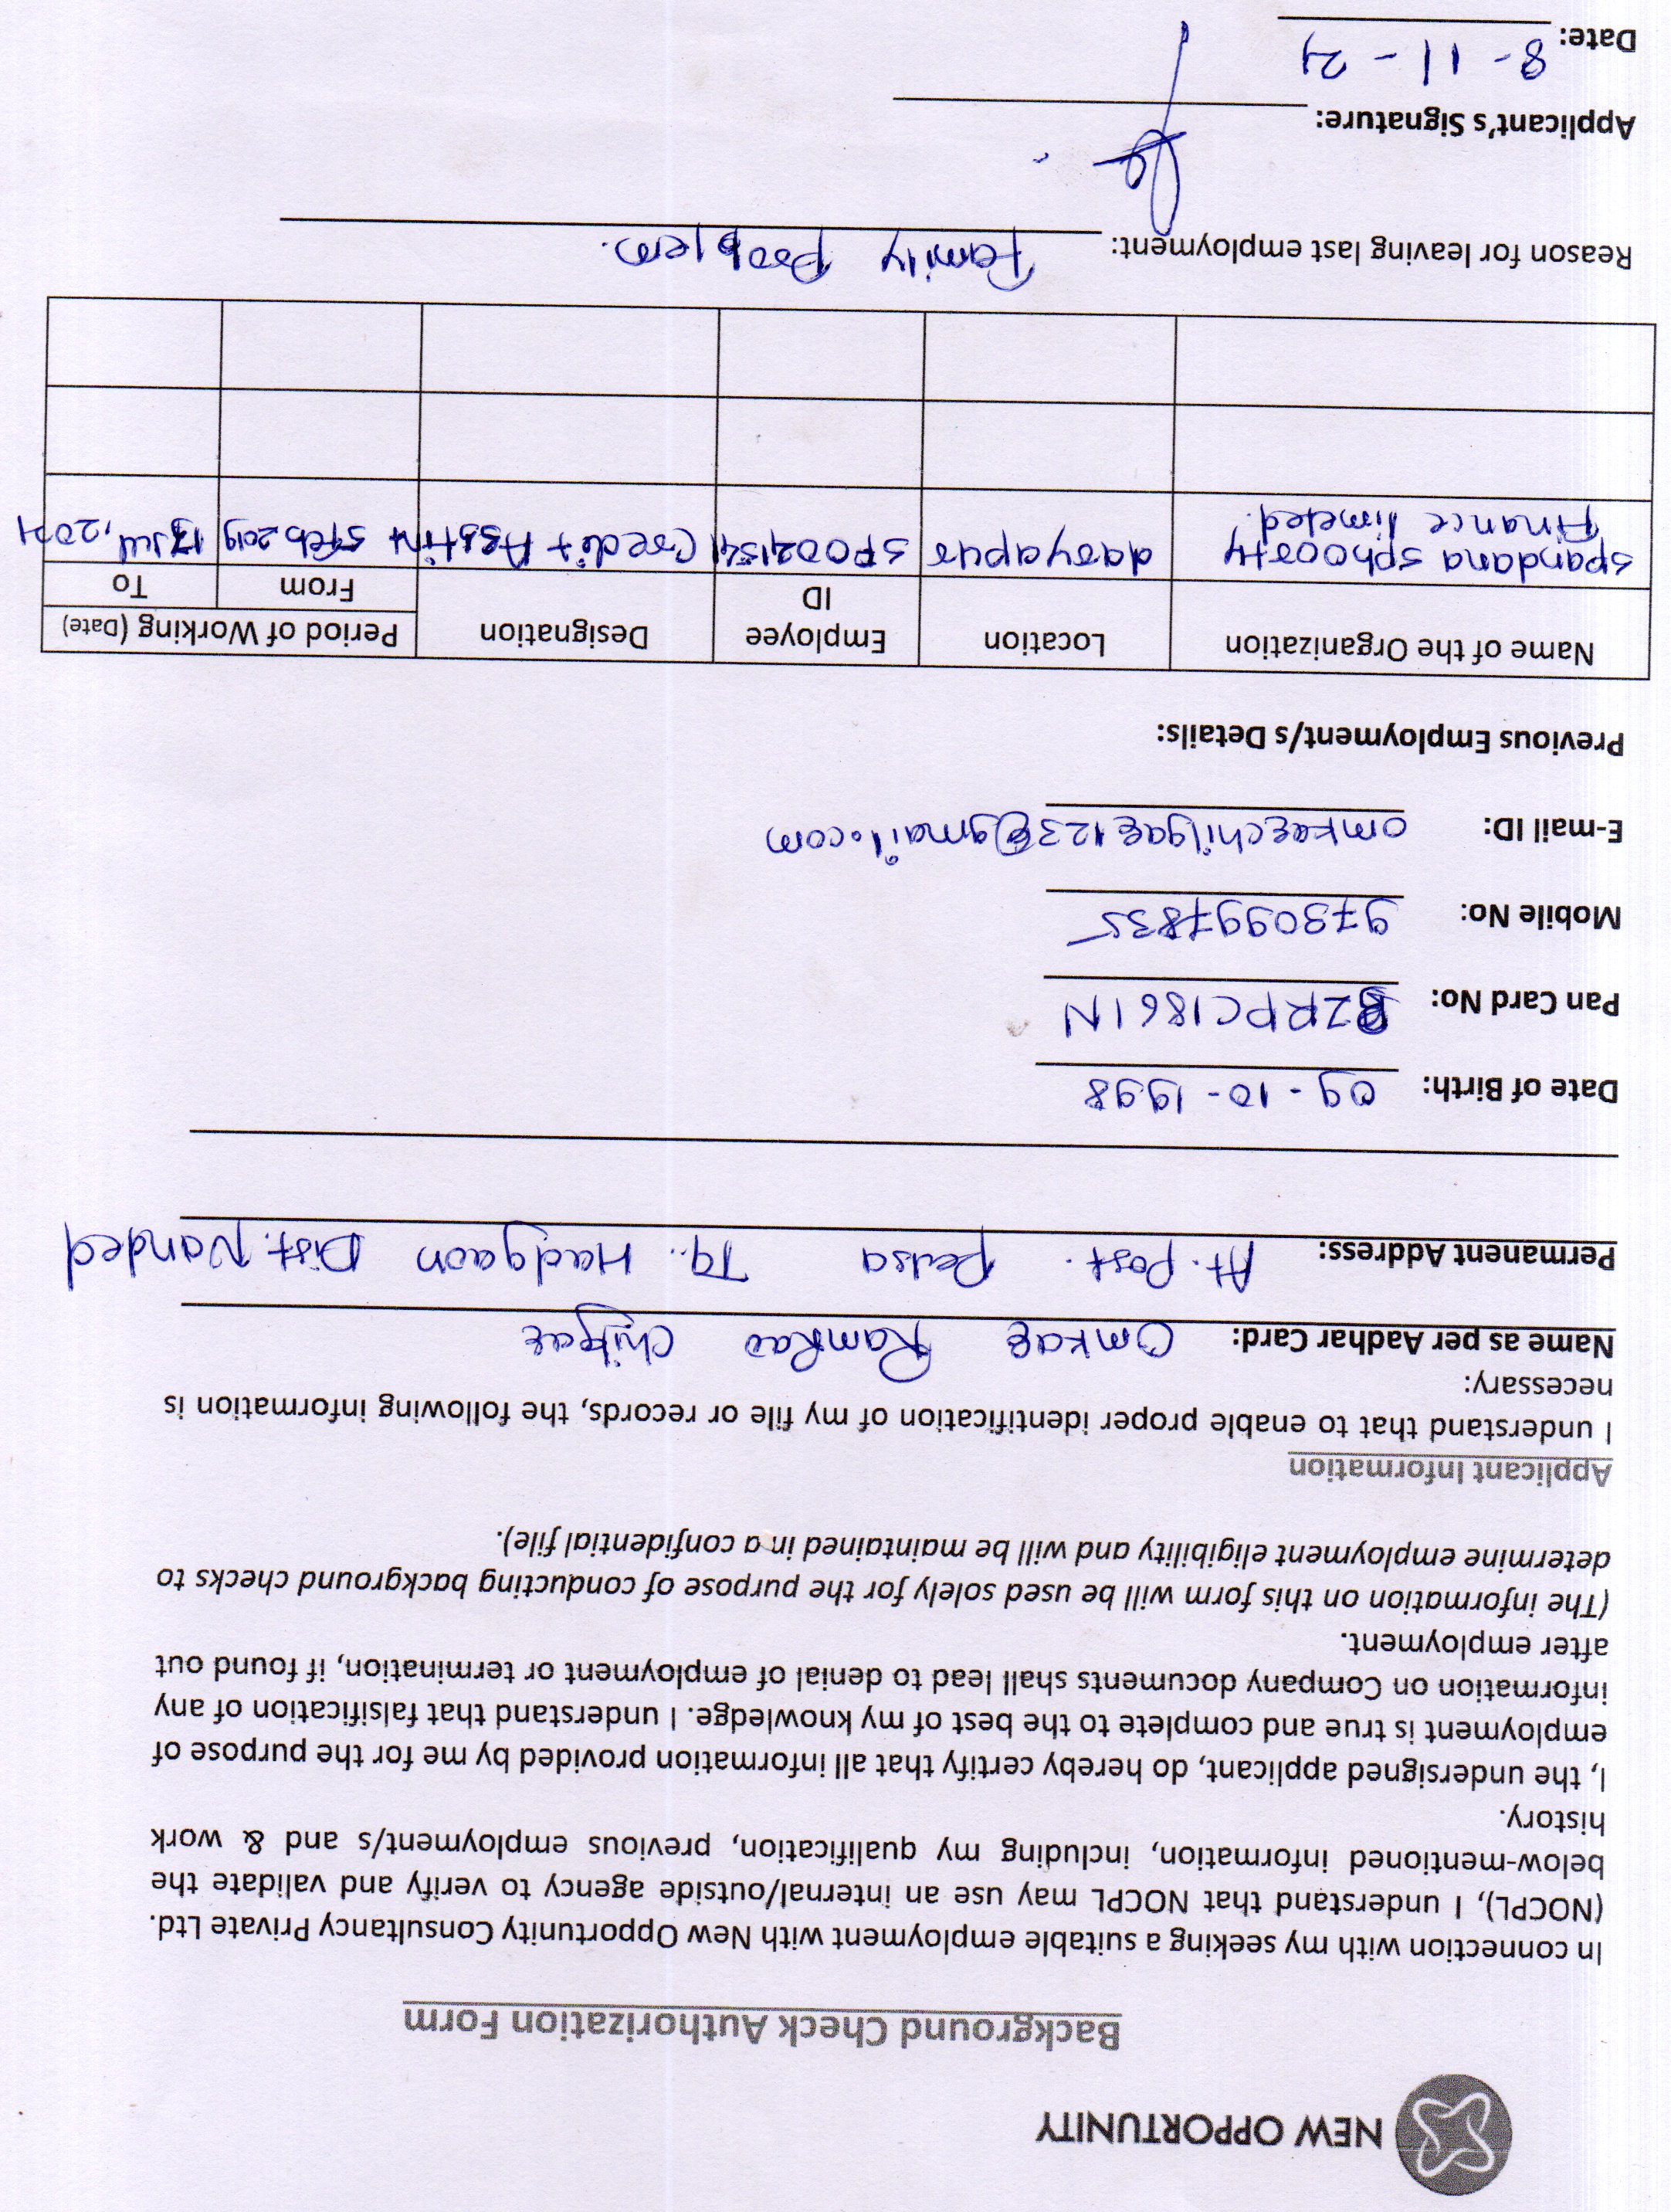 NEW OPPORTUNITY
Background Check Authorization Form
In connection with my seeking a suitable employment with New Opportunity Consultancy Private Ltd.
(NOCPL), I understand that NOCPL may use an internal/outside agency to verify and validate the
below-mentioned information, including my qualification, previous employment/s and & work
history.
I, the undersigned applicant, do hereby certify that all information provided by me for the purpose of
employment is true and complete to the best of my knowledge. I understand that falsification of any
information on Company documents shall lead to denial of employment or termination, if found out
after employment.
(The information on this form will be used solely for the purpose of conducting background checks to
determine employment eligibility and will be maintained in a confidential file).
Applicant Information
I understand that to enable proper identification of my file or records, the following information is
necessary:
Name as per Aadhar Card: Omkar RamRao Chilgar
Permanent Address: At. Post. Tq.. Hadgaon Dist. Nanded
Date of Birth: 09-10-1998
Pan Card No: BZRPC1861N
Mobile No: 9730997835
E-mail ID: omkarchilgar123@gmail.com
Previous Employment/s Details:
Name of the Organization Location Employee ID Designation Period of Working (Date)
From To
spandana sphoorty Finance limeted. daryapur Credit 5 Feb 2019 Jul, 2021
Reason for leaving last employment: Family Problem.
Applicant's Signature:
Date: 8-11-21